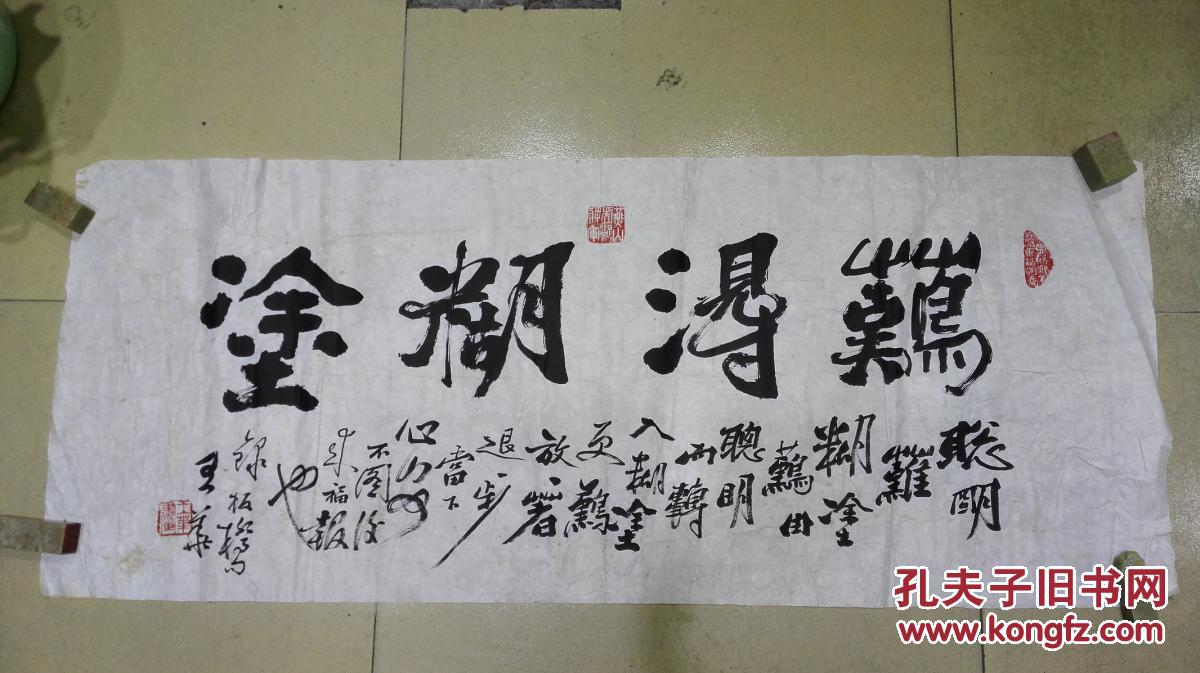 難得糊塗
聪明
難
糊塗
難由
聰明
而轉
入糊塗
更難
放一著
退一步
當下
心安
不图後
来福報
也
録板橋
王華
孔夫子旧书网
www.kongfz.com